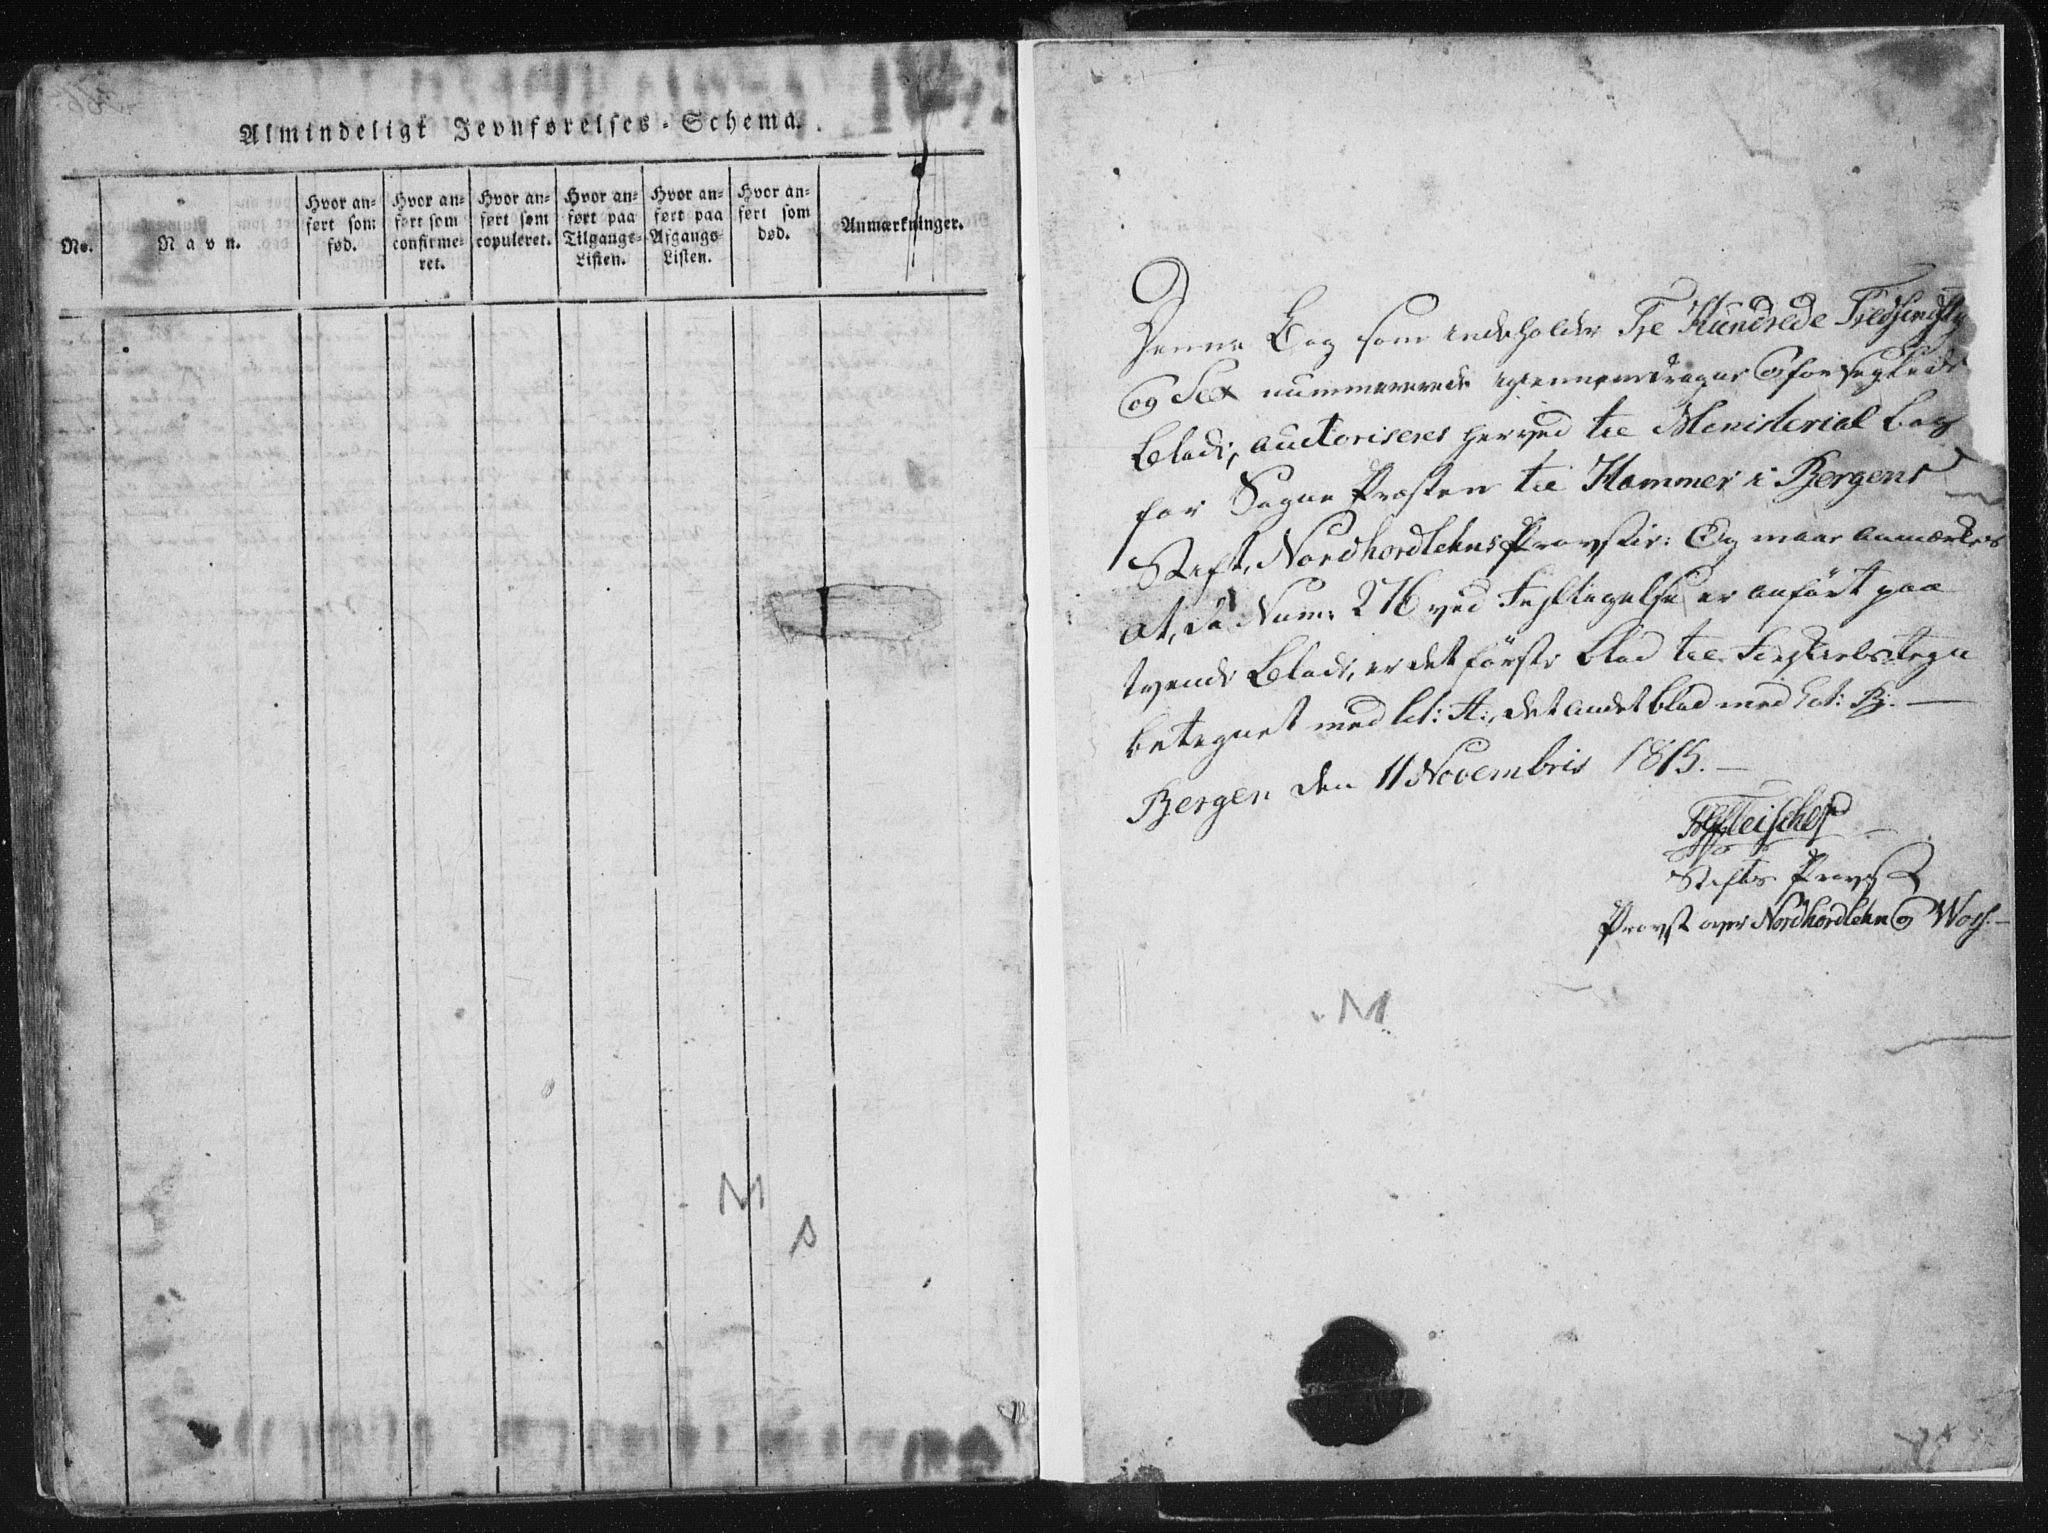 Almindeligt Jevnførelses-Schema.
No.
Navn.
Hvor an-
ført som
fød.
Hvor an-
ført som
confirme-
ret.
Hvor an-
ført som
copuleret.
Hvor an-
ført paa
Tilgangs-
Listen.
Hvor an-
ført paa
Afgangs-
Listen.
Hvor an-
ført som
død.
Anmærkninger.
M
Denne Bog som indeholder Tre Hundrede Tredsindsty
og Sex nummererede igiennemdragne og forseglede
Blade, auctoriseres herved til Ministerial bog
for Sogne Præsten til Hammer i Bergens
Stift, Nordhordlehns Provstie: Og maae anmærkes
at, da Num: 276 ved Fejltagelse er anført paa
tvende Blade, er det første blad til Forskiels Tegn
betegnet med lit: A:, det andet blad med Lit: B:. —
Bergen den 11 Novembris 1815. —
Fleischer
Stifts Provst
Provst over Nordhordlehn og Woss. —
M